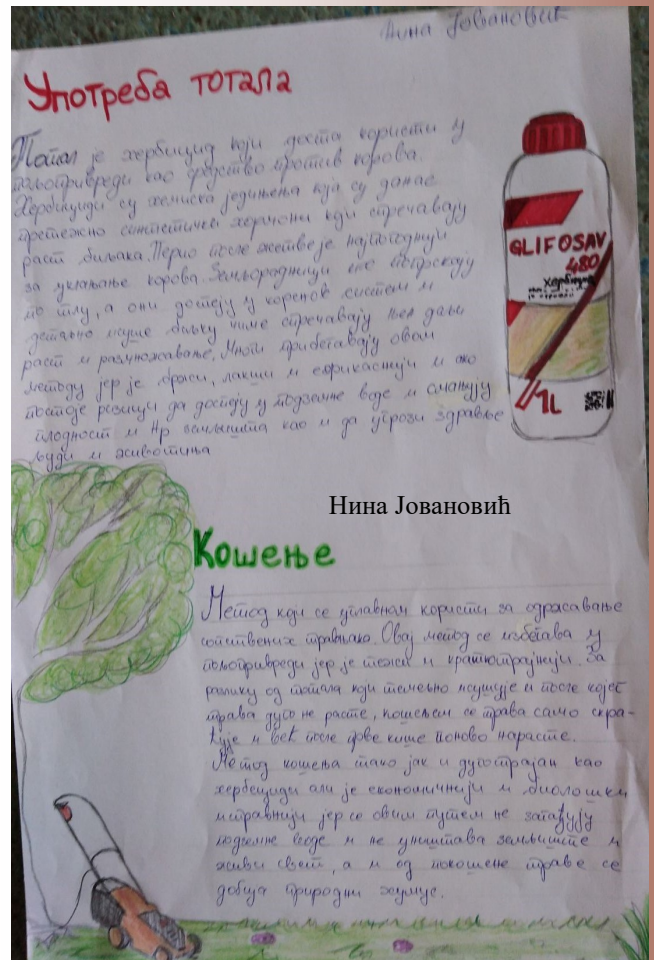 Нина Јовановић
Употреба тотала
Тотал је хербицид који доста користи у
пољопривреди као средство против корова.
Хербициди су хемиска једињења која су данас
претежно синтетички хормони који спречавају
раст биљака. Перио после жетве је најпогоднији
за уклањање корова. Земљорадници их попрскају
по тлу, а они доспеју у коренов систем и
детаљно исуше биљку чиме спречавају њен даљи
раст и размножавање. Многи прибегавају овом
методу јер је бржи, лакши и ефикаснији и ако
постоје ризици да доспеју у подземне воде и смањују
плодност и Нр земљишта као и да угрози здравље
људи и животиња
GLIFOSAV
480
хербицид
1L
Нина Јовановић
Кошење
Метод који се углавном користи за одрасавање
сопствених травњако. Овај метод се избегава у
пољопривреди јер је тежи и краткотрајнији. За
разлику од тотала који темељно исушује и после којег
трава дуго не расте, кошењем се трава само скра-
ћује и већ после прве кише поново нарасте.
Метод кошења тако јак и дуготрајан као
хербециди али је економичнији и биолошки
исправнији јер се овим путем не загађују
подземне воде и не уништава земљиште и
живи свет, а и од покошене траве се
добија природни хумус.